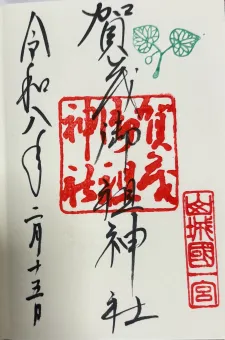 賀茂御祖神社
令和八年二月十五日
賀茂御祖神社
山城國一宮